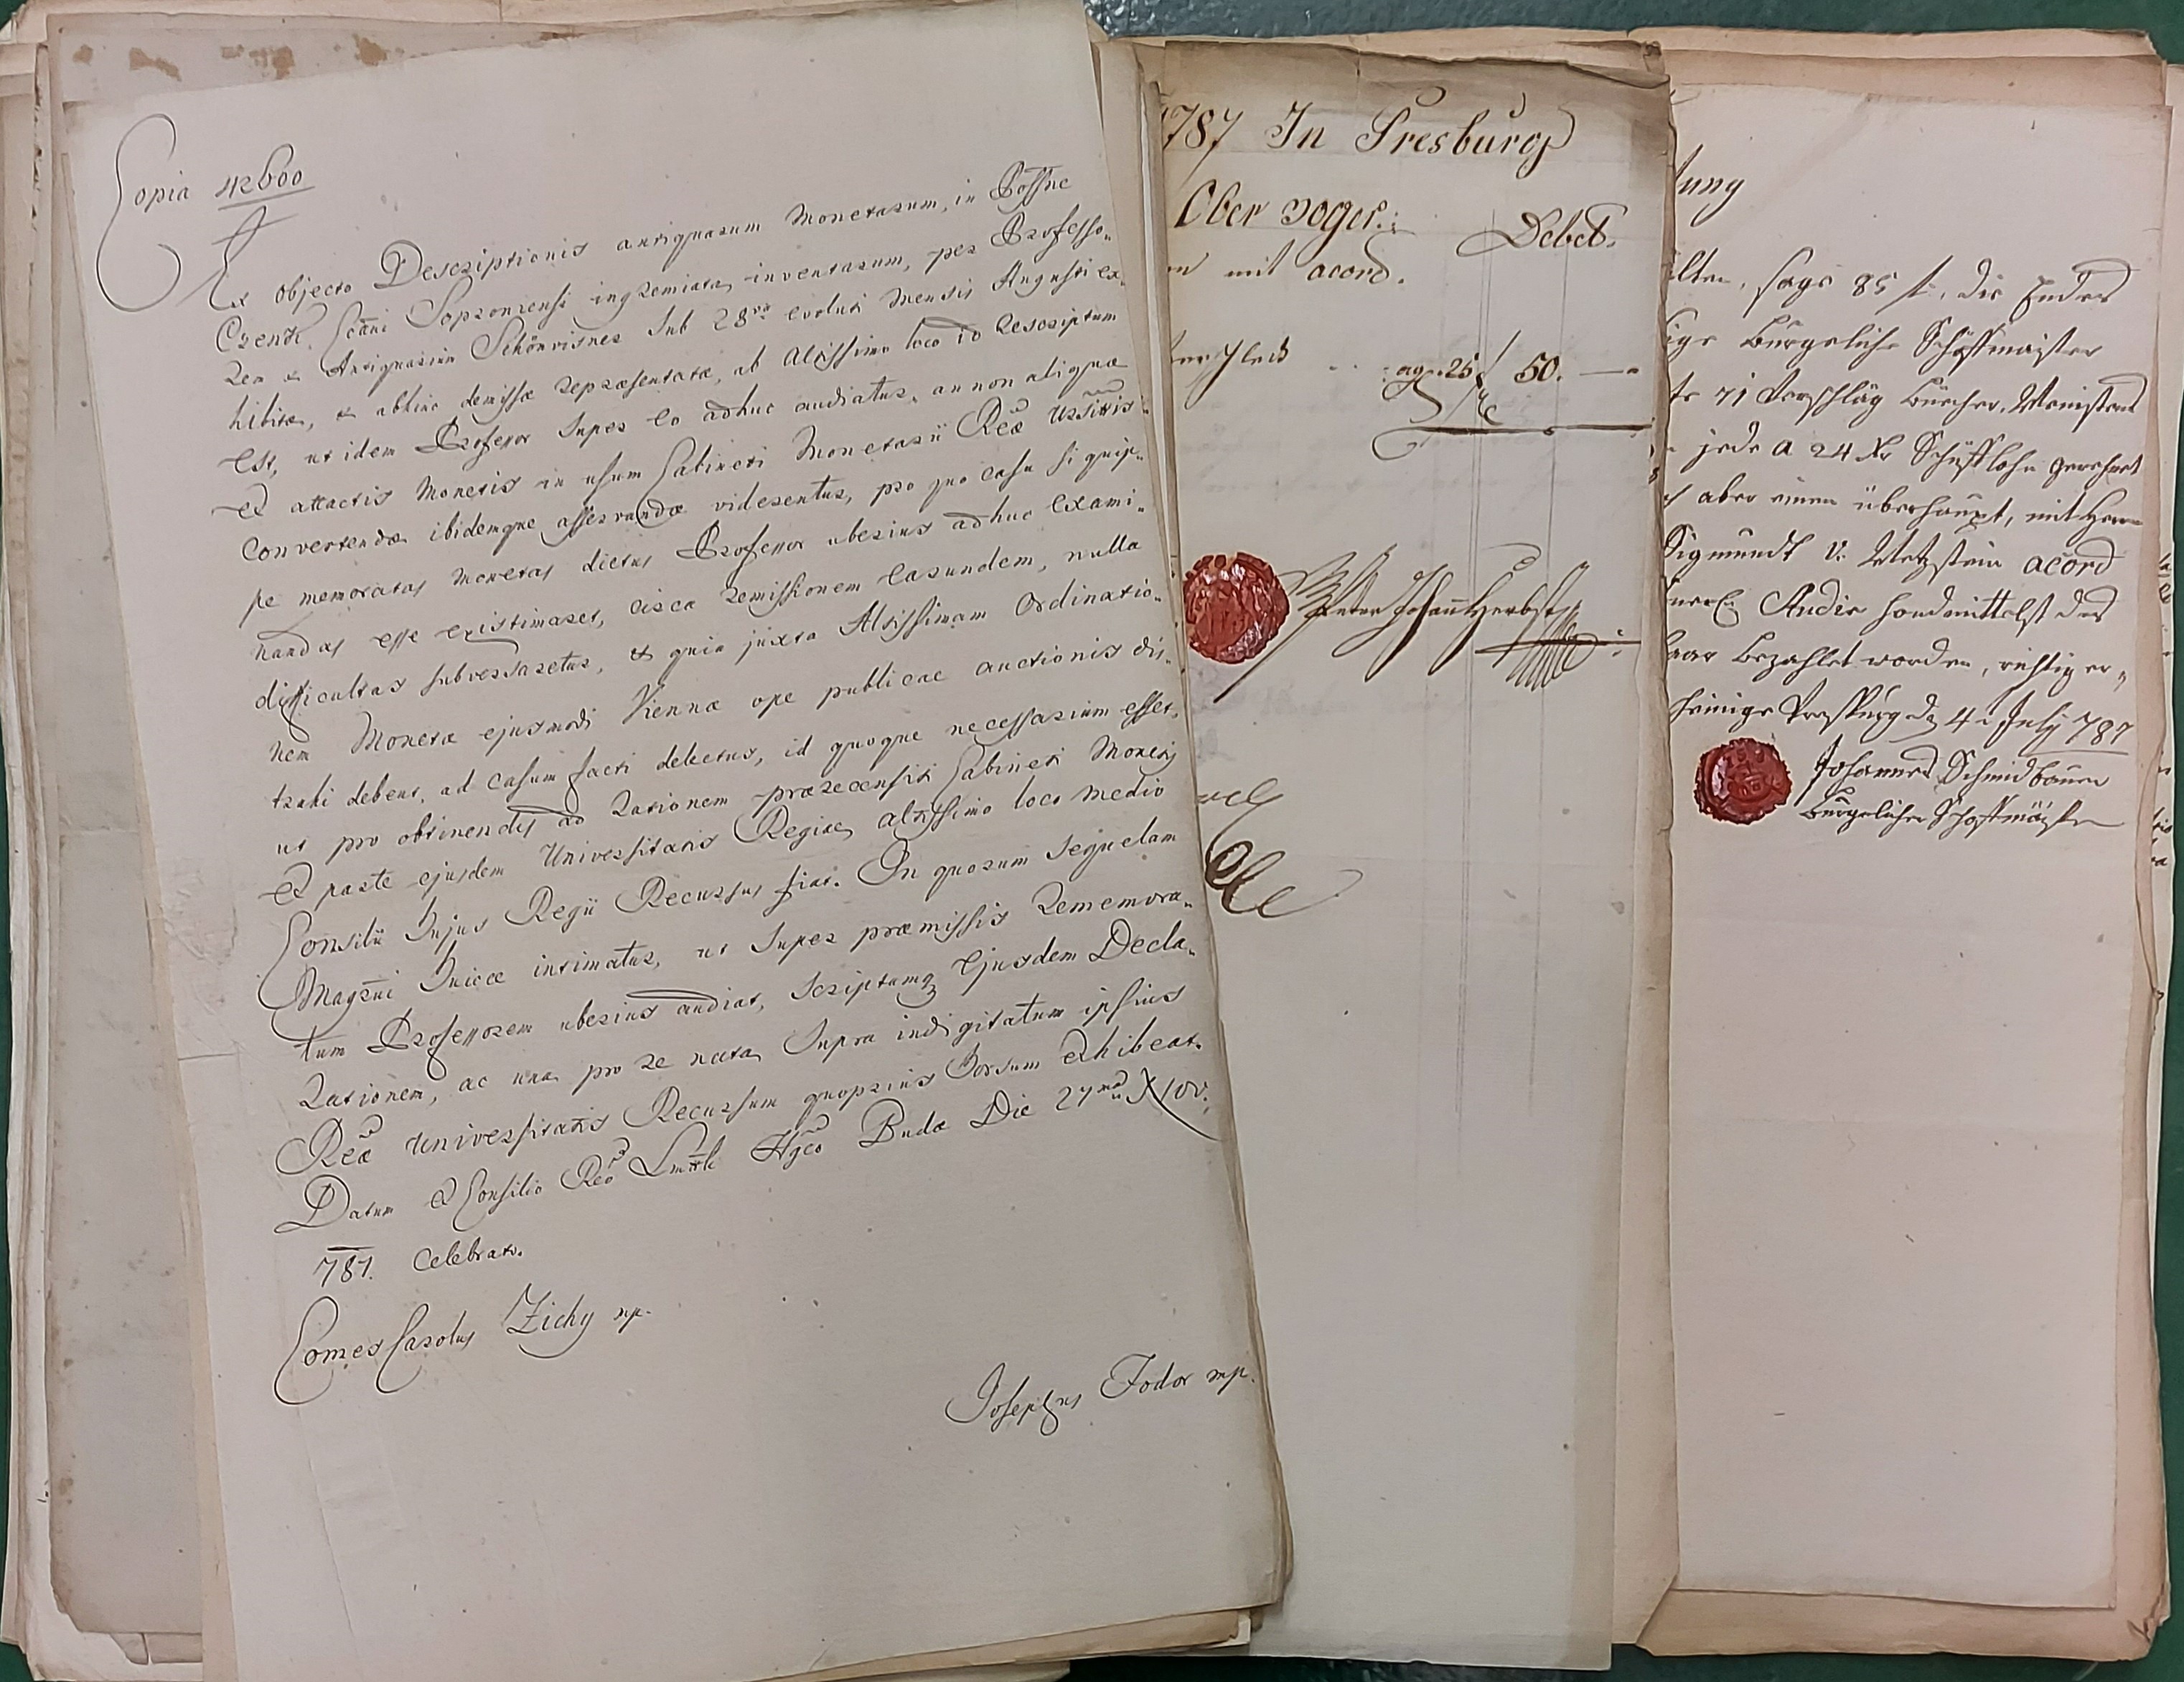 Copia 42600
Ex objecto Descriptionis antiquarum Monetarum, in Possne
Czenk Scãni Soproniensi ingremiata inventarum, per Professo„
rem & Antiquarium Schönvisner sub 28va evoluti Mensis Augusti ex„
hibitæ, & abhinc demissæ repræsentatæ, ab altissimo loco id rescriptum
est, ut idem Professor super eo adhuc audiatur, an non aliquæ
ex attactis Monetis in usum Cabineti Monetarii Reæ Urssittis
convertendæ ibidemque asservandæ viderentur, pro quo casu si quip„
pe memoratas monetas dictus Professor uberius adhuc exami„
nandas esse existimaret, circa remissionem earundem, nulla
difficultas subversaretur, & quia juxta Altissimam Ordinatio„
nem Monetæ ejusmodi Viennæ ope publicae auctionis dis„
trahi debent, ad casum facti delectus, id quoque necessarium esset,
ut pro obtinendis ad rationem præрecensiti Cabineti Monetis
ex parte ejusdem Universitatis Regiae altissimo loco medio
Consilii hujus Regii Recursus fiat. In quorum sequelam
Magrñi huicce intimatur, ut super præmissis rememora„
tum Professorem uberius audiat, scriptamq ejusdem Decla„
rationem, ac una pro re nata supra indigitatum ipsius
Reæ Universitatis Recursum quoprius horsum exhibeat.
Datum ex Consilio Reo Lmttli Hgco Budæ Die 27ma Xbr.
787. Celebrato.
Comes Carolus Zichy mp.
Josephus Fodor mp.
1787 In Presburg
Ober voger.:
Debet.
mit acord.
ag. 25 / 50. —
Peter Johann Herbst
tung
sage 85 f., die Endes
Bürgeliche Schöffmaister
71 Vorschläg
jede a 24 Xr Schöfflohn gerechnet
aber einen überhaupt, mit Herrn
Sigmundt v: Metzstein acord
Andre
Bezahlet worden, richtig er„
Presspurg d 4t July 787
Johannes Schmidbauer
Bürgelicher Schöffmäister